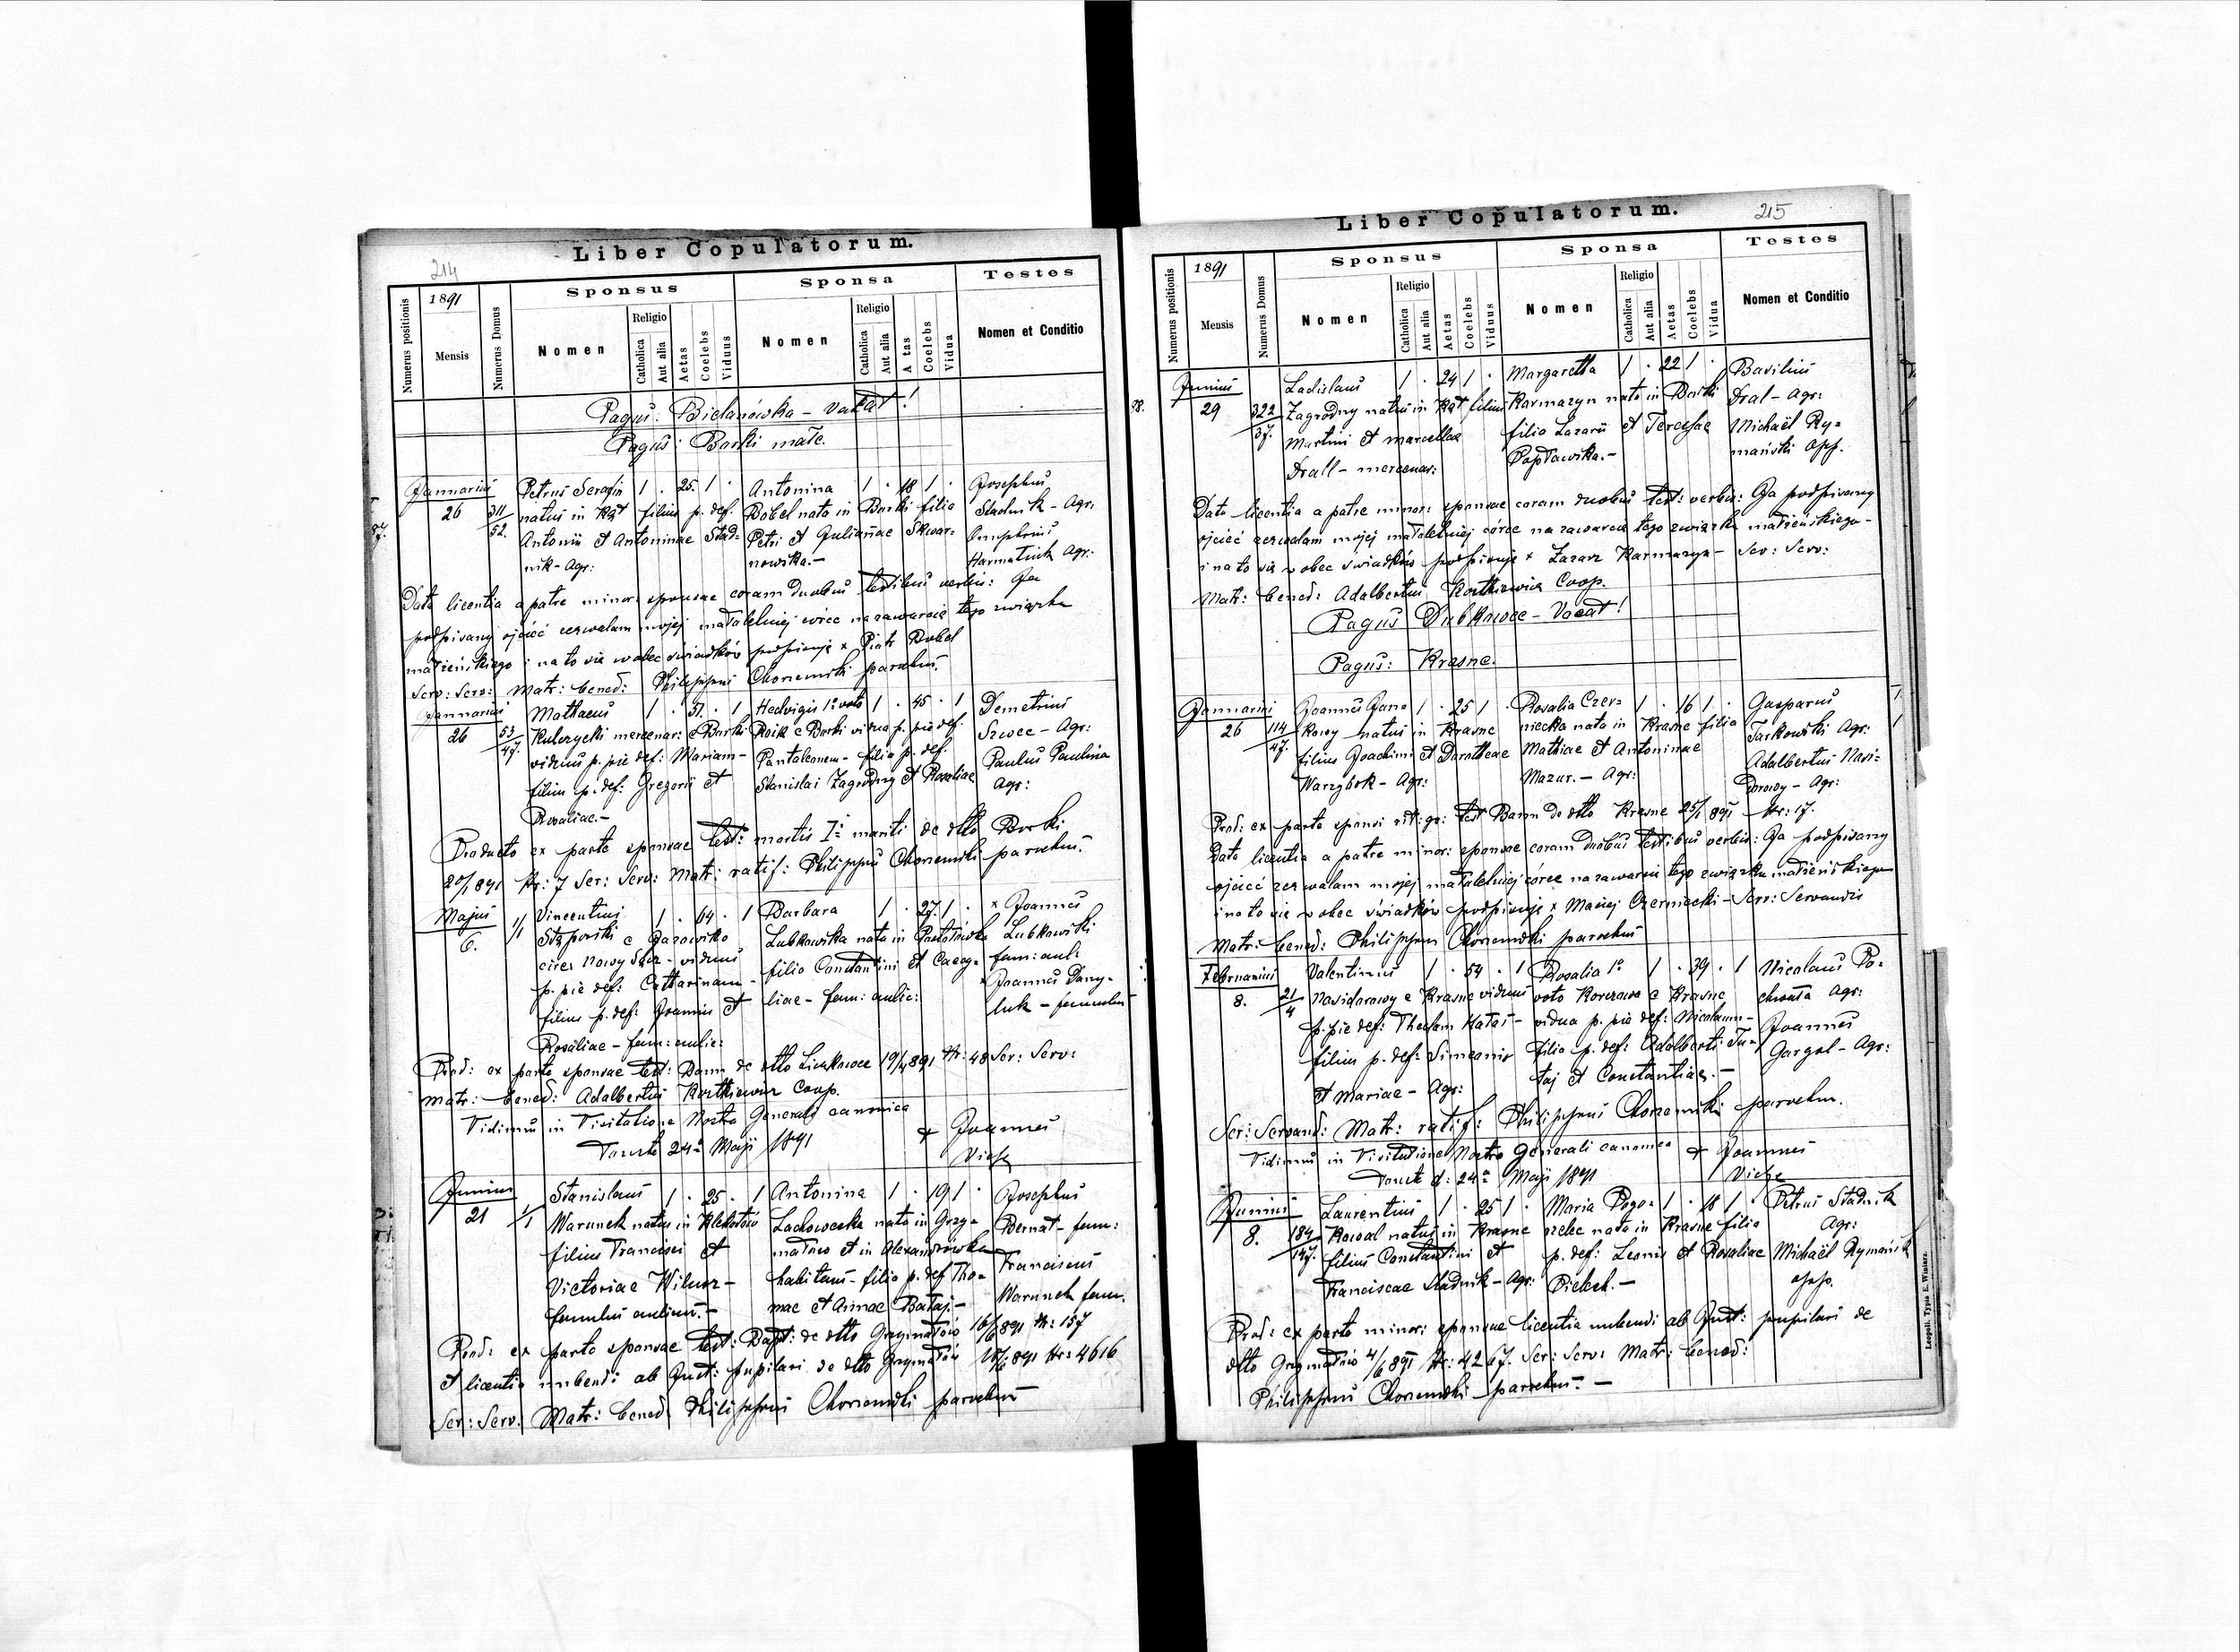 214
Liber Copulatorum.
Numerus positionis
1891
Mensis
Numerus Domus
Sponsus
Nomen
Religio
Catholica
Aut alia
Aetas
Coelebs
Viduus
Sponsa
Nomen
Religio
Catholica
Aut alia
A tas
Coelebs
Vidua
Testes
Nomen et Conditio
Pagus: Bielanówka - vacat!
Pagus: Borki małe.
Januarius
26
311/52.
Petrus Serafin 1 . 25. 1 .
natus in Kąt filius p. def.
Antonii et Antoninae Stad=
nik - Agr:
Antonina 1 . 18 1 .
Bobel nata in Borki filia
Petri et Julianae Skwar=
nowska. -
Josephus
Stadnik - Agr:
Onuphrius
Harmatiuk Agr:
Data licentia a patre minor: sponsae coram duobus testibus verbis: Ja
podpisany ojciec zezwalam mojej małaletniej córce na zawarcie tego związku
małżeńskiego i na to się wobec świadków podpisuję x Piotr Bobel
Serv: Serv: Matr: bened: Philippus Chorzemski parochus.
Januarius
26
53/47.
Mathaeus 1 . 51. . 1
Kulczycki mercenar: e Borki
viduus p. pie def: Mariam -
filius p. def: Gregorii et
Rosaliae. -
Hedvigis 1º voto 1 . 45 . 1
Roik e Borki vidua p. pie def.
Pantaleonem - filia p. def.
Stanislai Zagrodny et Rosaliae
Demetrius
Szwec - Agr:
Paulus Paulina
Agr:
Producto ex parte sponsae test: mortis I: mariti de dtto Borki
20/1 891 Nr: 7 Ser: Serv: Matr: ratif: Philippus Chorzemski parochus.
Majus
6.
1/1
Vincentius 1 . 64 . 1
circa Nowy Sącz - viduus
p. pie def: Catharinam -
filius p. def: Joannis et
Rosaliae - fam: aulic:
Barbara 1 . 27. 1 .
Lubkowska nata in
filia Constantini et Caeag=
liae - fam: aulic:
x Joannes
Lubkowski
fam: aul:
x Joannes Dany=
luk - famulus
Prod: ex parte sponsae test: Bann de dtto 19/4 891 Nr: 48 Ser: Serv:
Matr: bened: Adalbertus Kortkiewicz Coop.
Vidimus in Visitatione Nostra Generali canonica
24ª Maji 1891
+ Joannes
Junius
21
1/1
Stanislaus 1 . 25 . 1
Warunek natus in Klekotów
filius Francisci et
Victoriae
famulus aulicus. -
Antonina 1 . 19 1 .
Lachowecka nata in Grzy=
małów et in Alexandrówka
habitans - filia p. def Tho=
mae et Annae Bataj. -
Josephus
Bernat - fam:
Franciscus
Warunek fam.
Prod: ex parte sponsae test: Bapt: de dtto Grzymałów 16/6 891 Nr: 157
et licentia nubendi ab Jud: pupilari de dtto Grzymałów 18/6 891 Nr: 4616
Ser: Serv. Matr: bened. Philippus Chorzemski parochus
Liber Copulatorum.
215
Numerus positionis
1891
Mensis
Numerus Domus
Sponsus
Nomen
Religio
Catholica
Aut alia
Aetas
Coelebs
Viduus
Sponsa
Nomen
Religio
Catholica
Aut alia
Aetas
Coelebs
Vidua
Testes
Nomen et Conditio
Junius
29
322/37.
Ladislaus 1 . 24 1 .
Zagrodny natus in Kąt filius
Martini et Marcellae
Drall - mercenar:
Margaretta 1 . 22 1 .
Karmazyn nata in Borki
filia Lazarii et Teressae
Popławska. -
Basilius
Dral - Agr:
Michaël Ry=
mański Opp.
Data licentia a patre minor: sponsae coram duobus test: verbis: Ja podpisany
ojciec zezwalam mojej małaletniej córce na zawarcie tego związku małżeńskiego -
i na to się wobec świadków podpisuję x Lazarz Karmazyn - Ser: Serv:
Matr: bened: Adalbertus Kortkiewicz Coop.
Pagus Dubkowce - Vacat!
Pagus: Krasne.
Januarius
26
114/47.
Joannes Jana= 1 . 25 1 .
kowy natus in Krasne
filius Joachimi et Darotheae
Warzybok - Agr:
Rosalia Czer= 1 . 16 1 .
niecka nata in Krasne filia
Mathiae et Antoninae
Mazur. - Agr:
Gasparus
Jarkowski Agr:
Adalbertus Nasi=
Dorowy - Agr:
Prod: ex parte sponsi rit: gr: test Bann de dtto Krasne 25/1 891 Nr: 17.
Data licentia a patre minor: sponsae coram duobus testibus verbis: Ja podpisany
ojciec zezwalam mojej małaletniej córce na zawarcie tego związku małżeńskiego
i na to się wobec świadków podpisuję x Maciej Czerniecki - Serv: Servandis
Matr: bened: Philippus Chorzemski parochus
Februarius
8.
21/4
Valentinus 1 . 54 . 1
Nasidorowy e Krasne viduus
p. pie def: Theclam Hałas -
filius p. def: Simeonis
et Mariae - Agr:
Rosalia 1º 1 . 39 . 1
voto Korczowa e Krasne
vidua p. pie def: Nicolaum -
filia p. def: Adalberti
et Constantiae. -
Nicolaus Po=
chwała Agr:
Joannes
Gargol - Agr:
Ser: Servand: Matr: ratif: Philippus Chorzemski parochus.
Vidimus in Visitatione Nostra Generali canonica
d: 24ª Maji 1891
+ Joannes
Junius
8.
184/147.
Laurentius 1 . 25 1 .
Kowal natus in Krasne
filius Constantini et
Franciscae Stadnik - Agr:
Maria Pogo= 1 . 18 1 .
rzelec nata in Krasne filia
p. def: Leonis et Rosaliae
Pichel. -
Petrus Stadnik
Agr:
Michaël Rymański
opp.
Prod: ex parte minor: sponsae licentia nubendi ab Jud: pupilari de
dtto Grzymałów 4/6 891 Nr: 4267. Ser: Serv: Matr: bened:
Philippus Chorzemski parochus. -
Leopoli. Typis E. Winiarz.